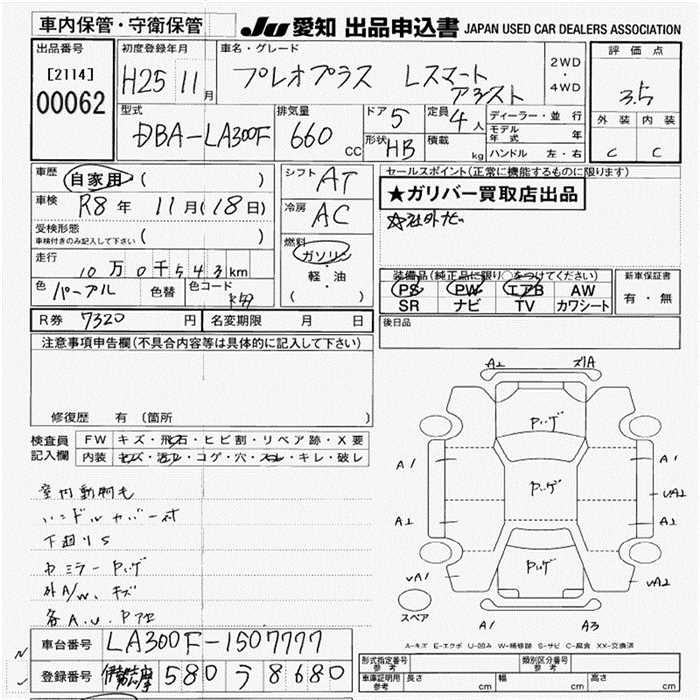 車内保管・守衛保管 JU 愛知 出品申込書 JAPAN USED CAR DEALERS ASSOCIATION
出品番号 [2114] 00062
初度登録年月 H25 11月
車名・グレード プレオプラス Lスマート
アシスト
2WD・4WD
評価点 3.5
外装 内装
C C
型式 DBA-LA300F
排気量 660 CC
ドア 5 定員 4人
形状 HB 積載 kg
ディーラー・並行
モデル年式 年
ハンドル 左・右
車歴 自家用 ( )
車検 R8年 11月(18日)
受検形態 車検付きのみ記入して下さい ( )
走行 10万0千543km
色 パープル 色替 色コード
シフト AT
冷房 AC
燃料 ガソリン・軽・油
( )
セールスポイント(正常に機能するものに限ります)
★ガリバー買取店出品
☆社外ナビ
装備品(純正品に限り○をつけてください)
PS PW エアB AW
SR ナビ TV カワシート
新車保証書
有・無
R券 7320 円 名変期限 月 日
後日品
注意事項申告欄(不具合内容等は具体的に記入して下さい)
修復歴 有 (箇所 )
検査員記入欄
FW キズ・飛石・ヒビ割・リペア跡・X要
内装 キズ・汚れ・コゲ・穴・スレ・キレ・破レ
室内動物毛
ハンドルカバー付
下廻りS
ミラー Pハゲ
外A/W、キズ
各A.U.Pアセ
A2 ズレA
Pハゲ
A1 A1
Pハゲ UA2
A2 A2
Pハゲ
UA1 UA2
スペア A1 A3
A-キズ E-エクボ U-凹み W-補修跡 S-サビ C-腐食 XX-交換済
車台番号 LA300F-1507777
登録番号 580 う 8680
形式指定番号 参考 類別区分番号 参考
車庫証明用 参考 長さ cm 幅 cm 高さ cm